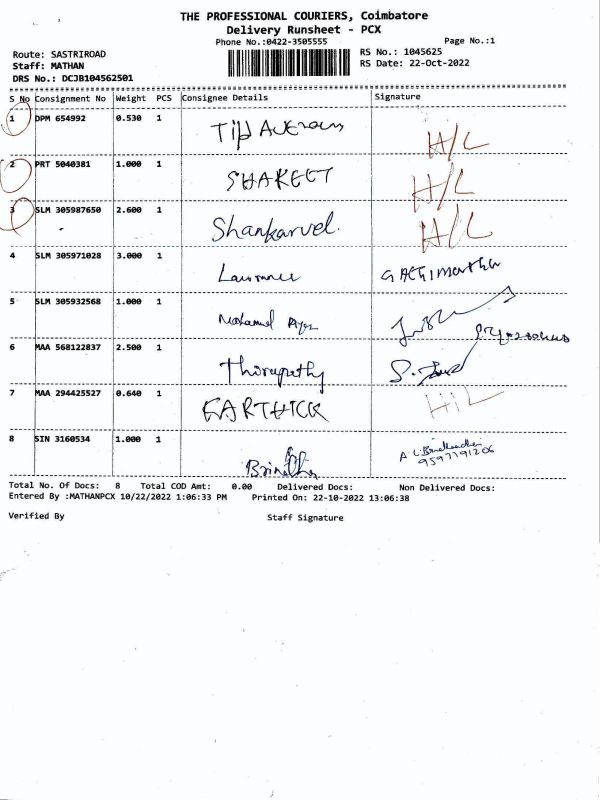 THE PROFESSIONAL COURIERS, Coimbatore
Delivery Runsheet - PCX
Phone No.:0422-3505555
Page No.:1
Route: SASTRIROAD
RS No.: 1045625
Staff: MATHAN
RS Date: 22-Oct-2022
DRS No.: DCJB104562501
S No Consignment No Weight PCS Consignee Details Signature
1 DPM 654992 0.530 1 H/L
2 PRT 5040381 1.000 1 SHAKEET H/L
3 SLM 305987650 2.600 1 Shankarvel. H/L
4 SLM 305971028 3.000 1
5 SLM 305932568 1.000 1
6 MAA 568122837 2.500 1 Thirupathy
7 MAA 294425527 0.640 1 KARTHICK H/L
8 SIN 3160534 1.000 1 9597791206
Total No. Of Docs: 8 Total COD Amt: 0.00 Delivered Docs: Non Delivered Docs:
Entered By :MATHANPCX 10/22/2022 1:06:33 PM Printed On: 22-10-2022 13:06:38
Verified By Staff Signature